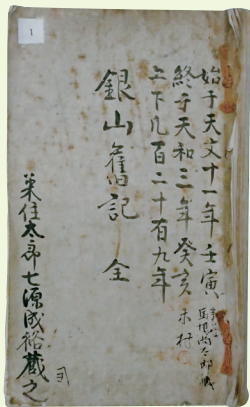 1
始于天文十一年壬寅
終于天和三年癸亥
上下凡百二十有九年
銀山舊記 全
住太郎七源成裕蔵之